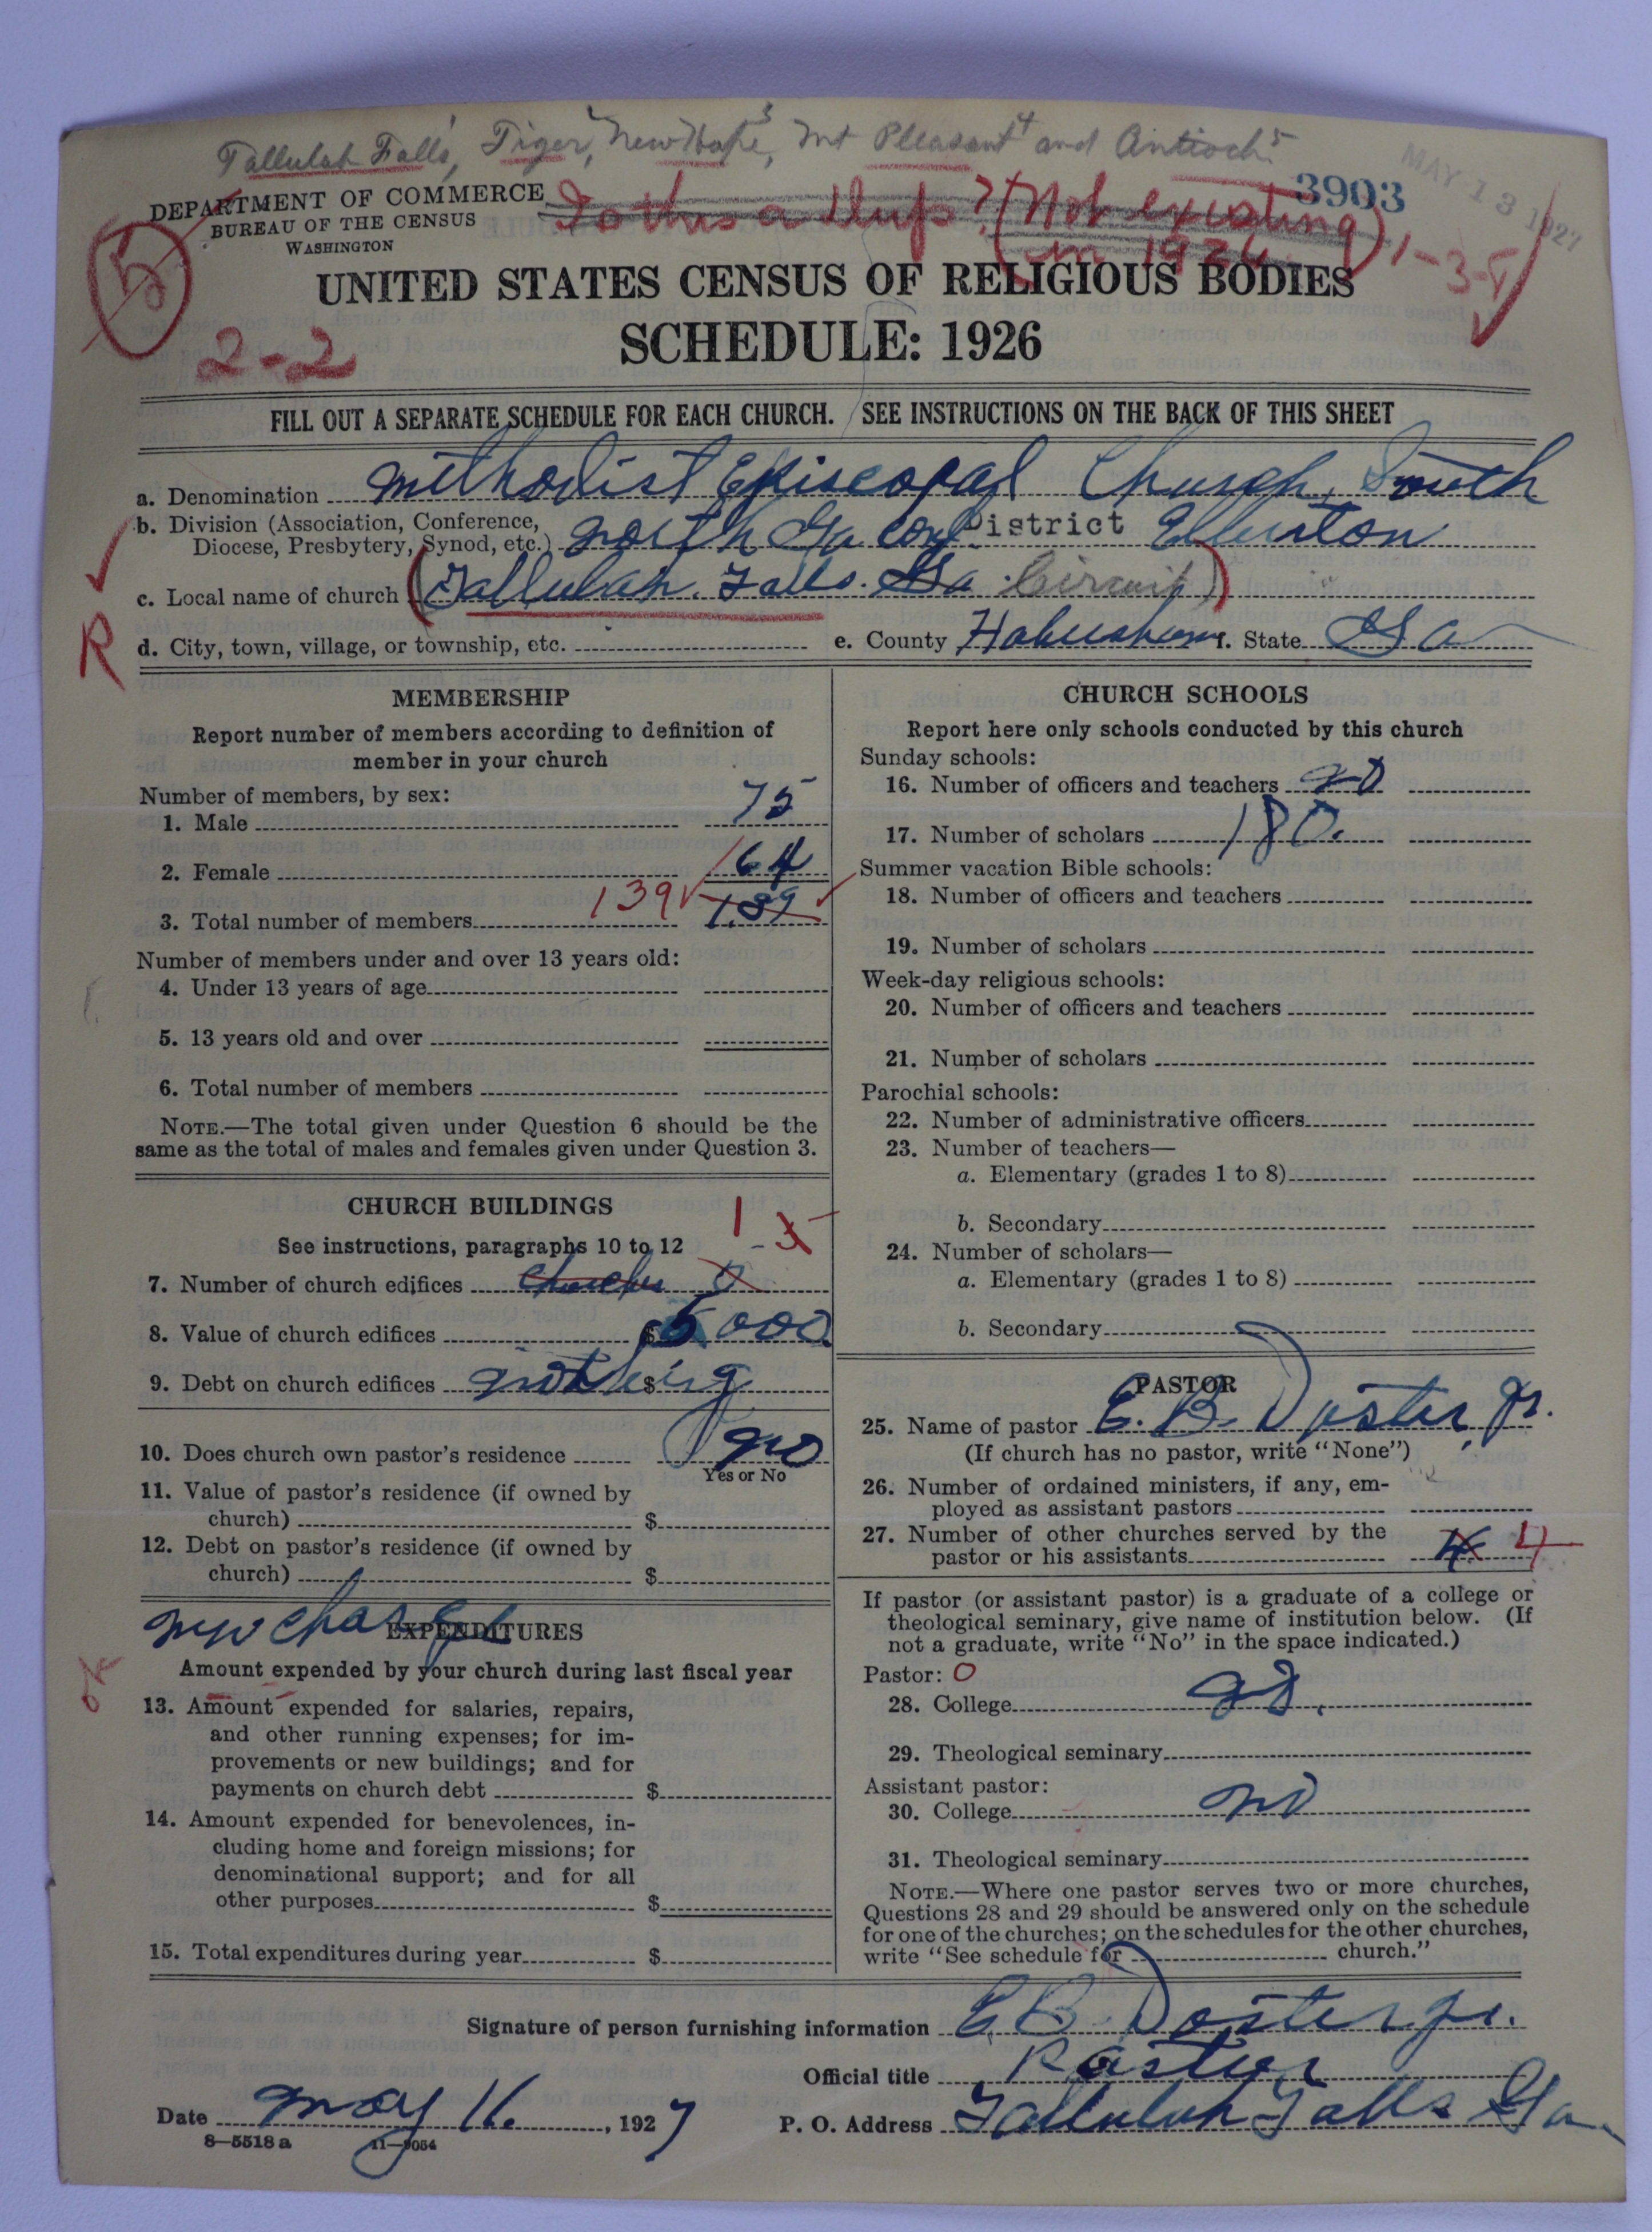 Tallulah Falls 1, Tiger 2, New Hope 3, Mt Pleasant 4 and Antioch 5
DEPARTMENT OF COMMERCE
BUREAU OF THE CENSUS
WASHINGTON
Is this a dup? (Not existing in 1926) 1-3-5
3903
MAY 13 1927
5
2-2
UNITED STATES CENSUS OF RELIGIOUS BODIES
SCHEDULE: 1926
FILL OUT A SEPARATE SCHEDULE FOR EACH CHURCH. SEE INSTRUCTIONS ON THE BACK OF THIS SHEET
a. Denomination Methodist Episcopal Church, South
b. Division (Association, Conference, Diocese, Presbytery, Synod, etc.) North Ga Conf District Elberton
c. Local name of church (Tallulah Falls. Ga Circuit)
R
d. City, town, village, or township, etc. e. County Habersham f. State Ga
MEMBERSHIP
Report number of members according to definition of
member in your church
Number of members, by sex:
1. Male 75
2. Female 64
3. Total number of members 139 139
Number of members under and over 13 years old:
4. Under 13 years of age
5. 13 years old and over
6. Total number of members
NOTE.—The total given under Question 6 should be the
same as the total of males and females given under Question 3.
CHURCH BUILDINGS
See instructions, paragraphs 10 to 12
1
7. Number of church edifices churches
8. Value of church edifices $5000
9. Debt on church edifices $ nothing
10. Does church own pastor's residence no
Yes or No
11. Value of pastor's residence (if owned by
church) $
12. Debt on pastor's residence (if owned by
church) $
new charge
EXPENDITURES
OK
Amount expended by your church during last fiscal year
13. Amount expended for salaries, repairs,
and other running expenses; for im-
provements or new buildings; and for
payments on church debt $
14. Amount expended for benevolences, in-
cluding home and foreign missions; for
denominational support; and for all
other purposes $
15. Total expenditures during year $
CHURCH SCHOOLS
Report here only schools conducted by this church
Sunday schools:
16. Number of officers and teachers 20
17. Number of scholars 180.
Summer vacation Bible schools:
18. Number of officers and teachers
19. Number of scholars
Week-day religious schools:
20. Number of officers and teachers
21. Number of scholars
Parochial schools:
22. Number of administrative officers
23. Number of teachers—
a. Elementary (grades 1 to 8)
b. Secondary
24. Number of scholars—
a. Elementary (grades 1 to 8)
b. Secondary
PASTOR
25. Name of pastor E. B. Doster, Jr.
(If church has no pastor, write "None")
26. Number of ordained ministers, if any, em-
ployed as assistant pastors
27. Number of other churches served by the
pastor or his assistants 4
If pastor (or assistant pastor) is a graduate of a college or
theological seminary, give name of institution below. (If
not a graduate, write "No" in the space indicated.)
Pastor: 0
28. College no.
29. Theological seminary
Assistant pastor:
30. College no
31. Theological seminary
NOTE.—Where one pastor serves two or more churches,
Questions 28 and 29 should be answered only on the schedule
for one of the churches; on the schedules for the other churches,
write "See schedule for church."
Signature of person furnishing information E. B. Doster Jr.
Official title Pastor
Date May 11, 1927 P. O. Address Tallulah Falls Ga
8—5518 a 11—9054